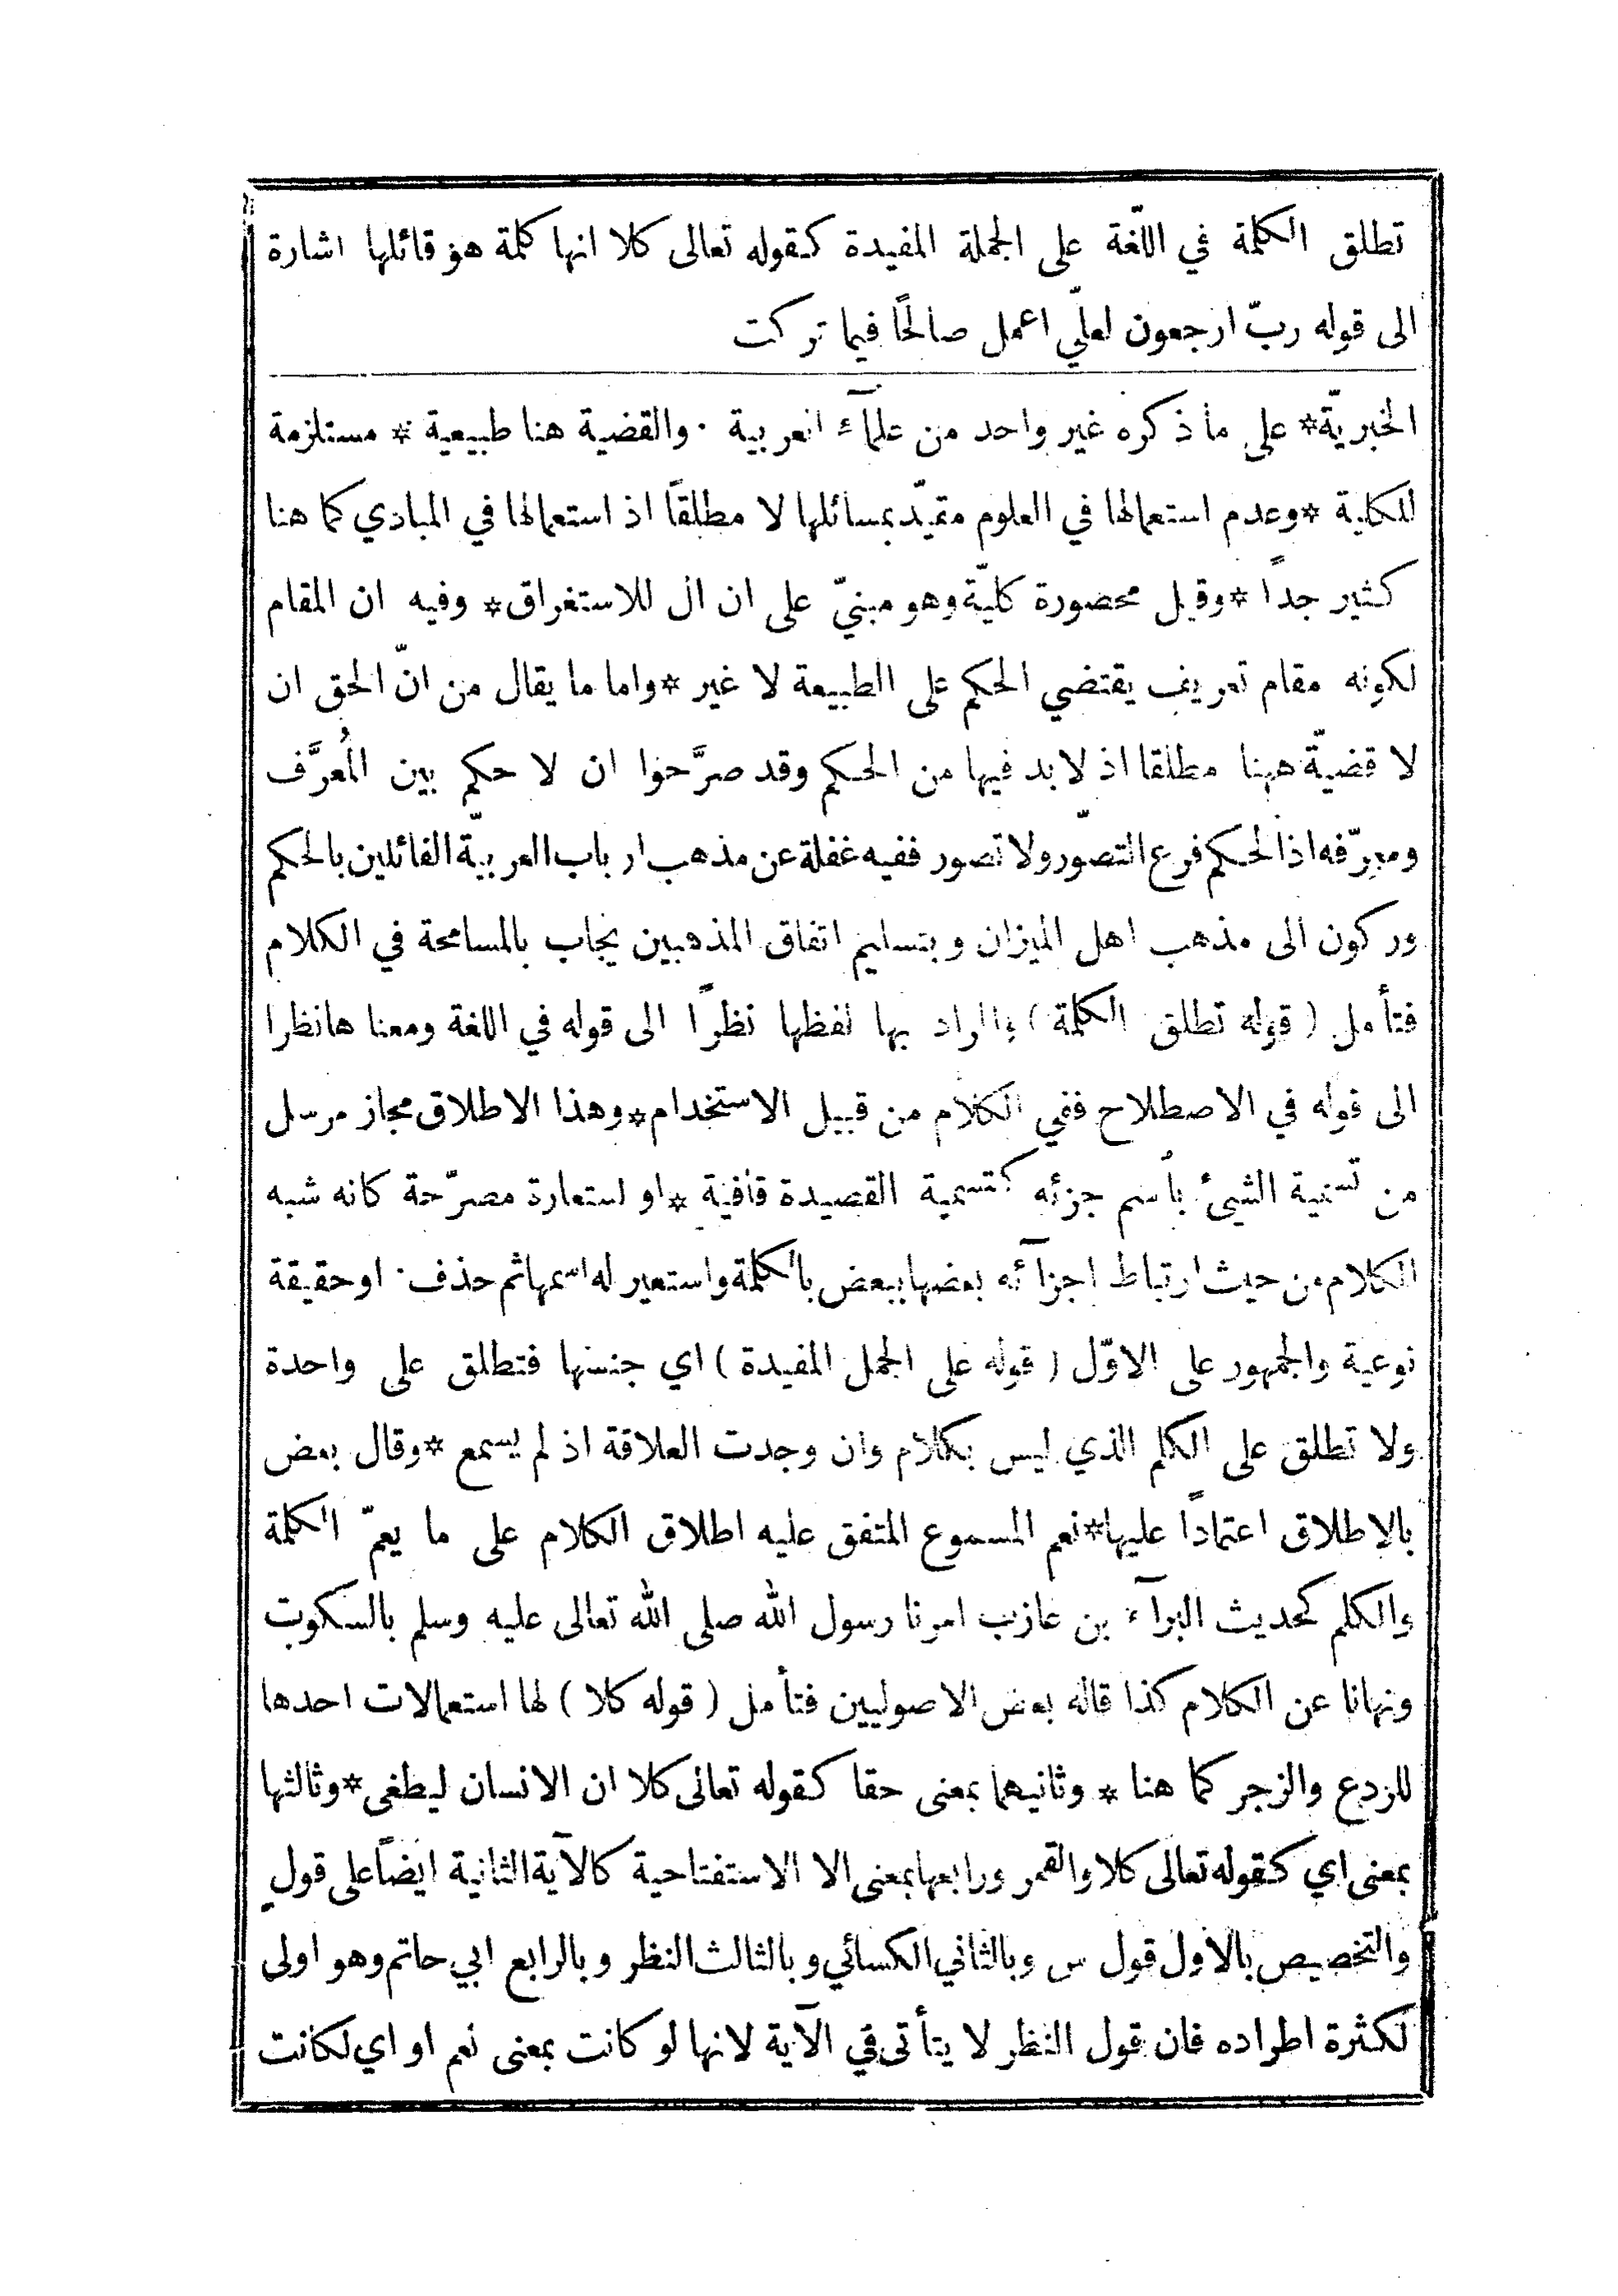 تطلق الكلمة في اللّغة على الجملة المفيدة كقوله تعالى كلا انها كلمة هو قائلها اشارة
الى قوله ربّ ارجعون لعلّي اعمل صالحًا فيما تركت
الخبريّة* على ما ذكره غير واحد من علمآء العربية . والقضية هنا طبيعية * مستلزمة
للكلية * وعدم استعمالها في العلوم متميّد بمسائلها لا مطلقًا اذ استعمالها في المبادي كما هنا
كثير جدًا * وقيل محصورة كليّة وهو مبنيّ على ان ال للاستغراق * وفيه ان المقام
لكونه مقام تعريف يقتضي الحكم على الطبيعة لا غير * واما ما يقال من انّ الحق ان
لا قضيّة ههنا مطلقا اذ لا بد فيها من الحكم وقد صرَّحوا ان لا حكم بين المُعرَّف
ومعرِّفه اذ الحكم فرع التصوّر ولا تصور ففيه غفلة عن مذهب ارباب العربيّة القائلين بالحكم
وركون الى مذهب اهل الميزان وبتسليم اتفاق المذهبين يجاب بالمسامحة في الكلام
فتأمل ( قوله تطلق الكلمة ) المراد بها لفظها نظرًا الى قوله في اللغة ومعناها نظرا
الى قوله في الاصطلاح ففي الكلام من قبيل الاستخدام * وهذا الاطلاق مجاز مرسل
من تسمية الشيئ بأسم جزئه كتسمية القصيدة قافية * او استعارة مصرّحة كانه شبه
الكلام من حيث ارتباط اجزآئه بعضها ببعض بالكلمة واستعير له اسمها ثم حذف . او حقيقة
نوعية والجمهور على الاوّل ( قوله على الجمل المفيدة ) اي جنسها فتطلق على واحدة
ولا تطلق على الكلم الذي ليس بكلام وان وجدت العلاقة اذ لم يسمع * وقال بعض
بالاطلاق اعتمادًا عليها * نعم المسموع المتفق عليه اطلاق الكلام على ما يعمّ الكلمة
والكلم كحديث البرآء بن عازب امرنا رسول الله صلى الله تعالى عليه وسلم بالسكوت
ونهانا عن الكلام كذا قاله بعض الاصوليين فتأمل ( قوله كلا ) لها استعمالات احدها
للردع والزجر كما هنا * وثانيهما بمعنى حقا كقوله تعالى كلا ان الانسان ليطغى * وثالثها
بمعنى اي كقوله تعالى كلا والقمر ورابعها بمعنى الا الاستفتاحية كالآية الثانية ايضًا على قول
والتخصيص بالاول قول س وبالثاني الكسائي وبالثالث النظر وبالرابع ابي حاتم وهو اولى
لكثرة اطراده فان قول النظر لا يتأتى في الآية لانها لو كانت بمعنى نعم او اي لكانت